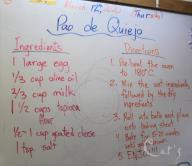 March 12, 2020 Thursday
Pao de Quiejo
Ingredients
1 large egg
1/3 cup olive oil
2/3 cup milk
1 1/2 cups tapioca
flour
1/2 - 1 cup grated cheese
1 tsp salt
Directions
1. Pre-heat the oven
to 180°C.
2. Mix the wet ingredients,
followed by the dry
ingredients
3. Roll into balls and place
onto baking sheet
4. Bake for 15-20
5. Enjoy